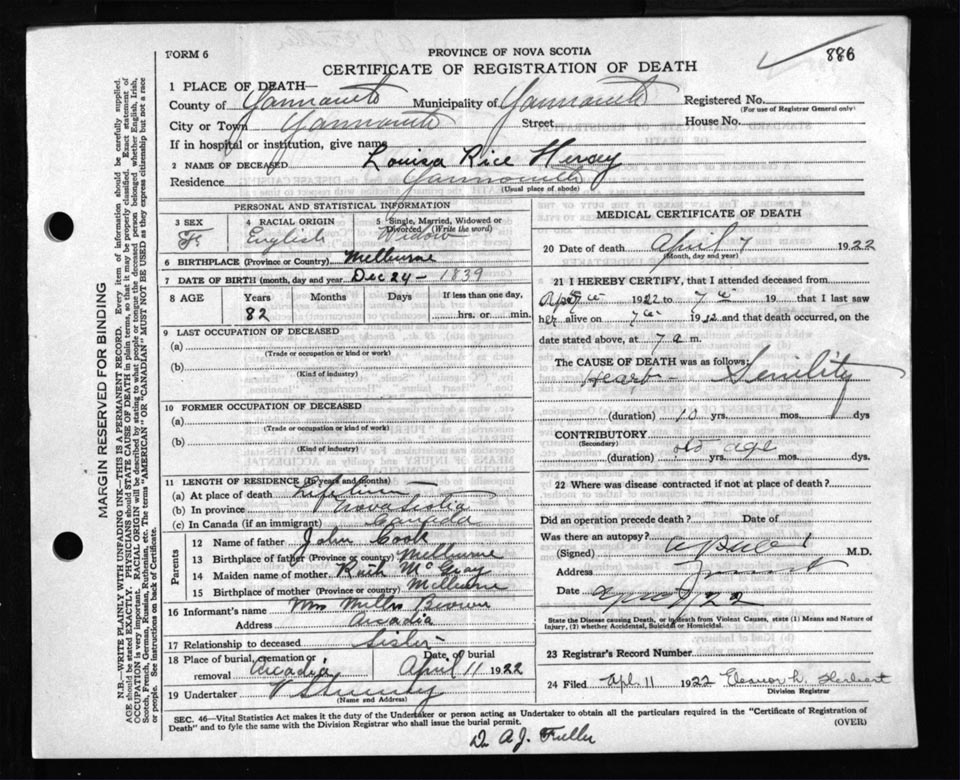 FORM 6
PROVINCE OF NOVA SCOTIA
886
CERTIFICATE OF REGISTRATION OF DEATH
1 PLACE OF DEATH—
County of Yarmouth Municipality of Yarmouth Registered No.
(For use of Registrar General only)
City or Town Yarmouth Street House No.
If in hospital or institution, give name
2 NAME OF DECEASED Louisa Rice Hersey
Residence Yarmouth
(Usual place of abode)
PERSONAL AND STATISTICAL INFORMATION
3 SEX F
4 RACIAL ORIGIN English
5 Single, Married, Widowed or Divorced (Write the word) Widow
6 BIRTHPLACE (Province or Country) Melburne
7 DATE OF BIRTH (month, day and year) Dec 24 - 1839
8 AGE Years Months Days If less than one day,
82 hrs. or min.
9 LAST OCCUPATION OF DECEASED
(a)
(Trade or occupation or kind or work)
(b)
(Kind of industry)
10 FORMER OCCUPATION OF DECEASED
(a)
(Trade or occupation or kind or work)
(b)
(Kind of industry)
11 LENGTH OF RESIDENCE (In years and months)
(a) At place of death Life time
(b) In province Nova Scotia
(c) In Canada (if an immigrant) Canada
Parents
12 Name of father John Cook
13 Birthplace of father (Province or country) Melburne
14 Maiden name of mother Ruth McGray
15 Birthplace of mother (Province or country) Melburne
16 Informant's name Mrs Brown
Address Arcadia
17 Relationship to deceased Sister
18 Place of burial, cremation or removal Arcadia Date of burial April 11 1922
19 Undertaker V Sweeny
(Name and Address)
MEDICAL CERTIFICATE OF DEATH
20 Date of death April 7 1922
(Month, day and year)
21 I HEREBY CERTIFY, that I attended deceased from
1922 to 7 19 that I last saw
her alive on 7 1922 and that death occurred, on
date stated above, at 7 a m.
The CAUSE OF DEATH was as follows:
Heart - Senility
(duration) 10 yrs. mos. dys
CONTRIBUTORY old age
(Secondary)
(duration) yrs. mos. dys
22 Where was disease contracted if not at place of death?
Did an operation precede death? Date of
Was there an autopsy?
(Signed) M.D.
Address
Date April 7 / 22
State the Disease causing Death, or in death from Violent Causes, state (1) Means and Nature of
Injury, (2) whether Accidental, Suicidal or Homicidal.
23 Registrar's Record Number
24 Filed Apl. 11 1922 Eleanor L. Herbert
Division Registrar
SEC. 46—Vital Statistics Act makes it the duty of the Undertaker or person acting as Undertaker to obtain all the particulars required in the "Certificate of Registration of
Death" and to fyle the same with the Division Registrar who shall issue the burial permit.
(OVER)
Dr A.J. Fuller
MARGIN RESERVED FOR BINDING
N.B.—WRITE PLAINLY WITH UNFADING INK—THIS IS A PERMANENT RECORD. Every item of information should be carefully supplied.
AGE should be stated EXACTLY. PHYSICIANS should STATE CAUSE OF DEATH in plain terms, so that it may be properly classified. Exact statement of
OCCUPATION is very important. RACIAL ORIGIN will be described by stating to what people or tongue the deceased person belonged whether English, Irish,
Scotch, French, German, Russian, Ruthenian, etc. The terms "AMERICAN" OR "CANADIAN" MUST NOT BE USED as they express citizenship but not a race
or people. See instructions on back of Certificate.